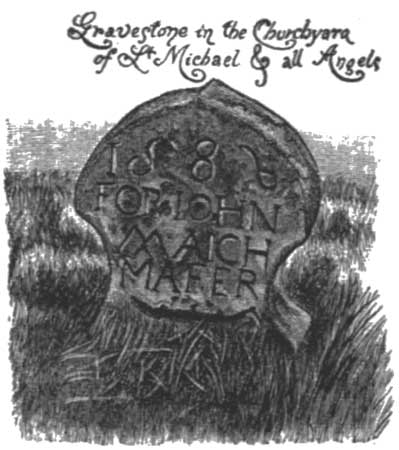 Gravestone in the Churchyard
of St Michael & all Angels
FOR IOHN
MAICH
MAFER